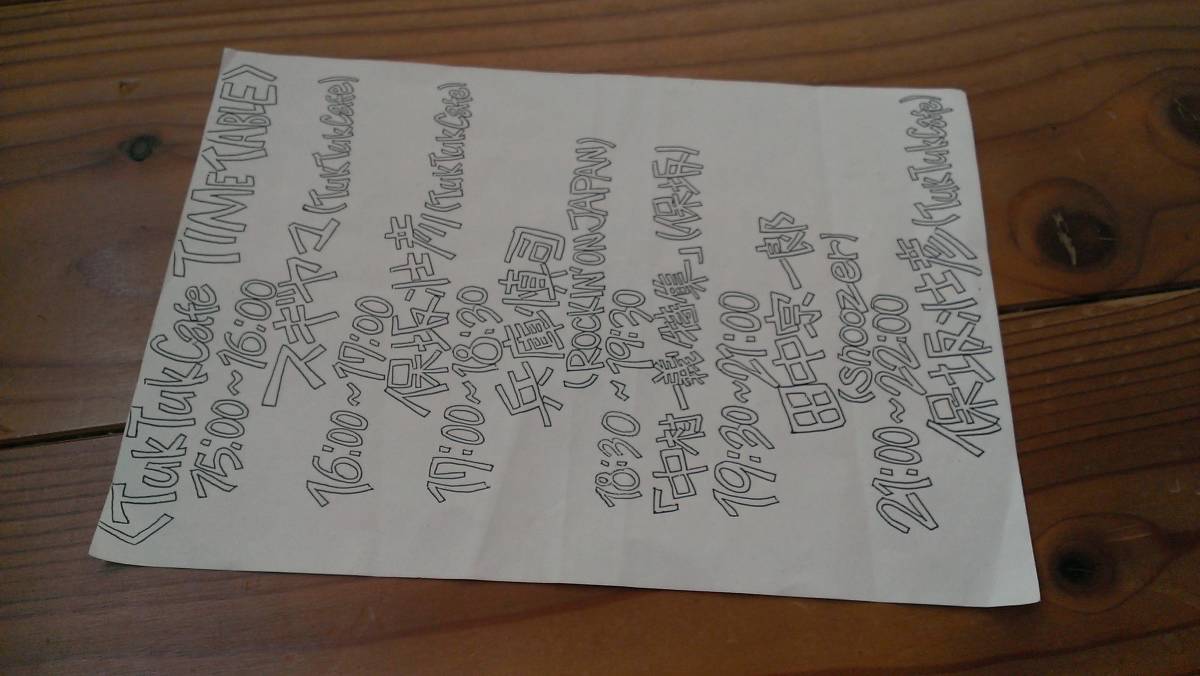 《TukTukCafe TIMETABLE》
15:00~16:00
スギヤマユ(TukTukCafe)
16:00~17:00
保坂壮彦(TukTukCafe)
17:00~18:30
兵庫慎司
(ROCKIN'ON JAPAN)
18:30~19:30
『中村一義特集』(保坂)
19:30~21:00
田中宗一郎
(snoozer)
21:00~22:00
保坂壮彦(TukTukCafe)